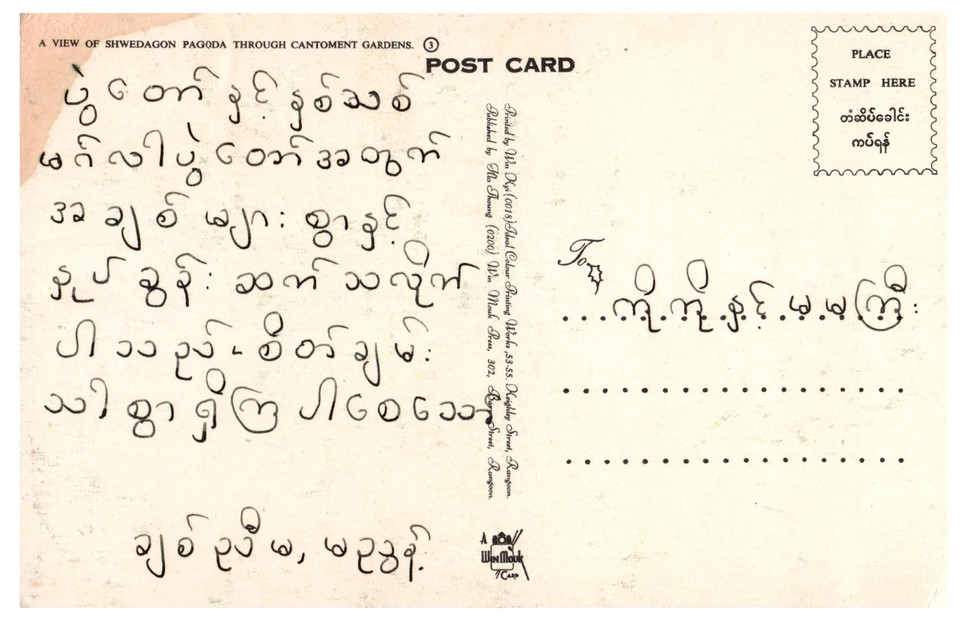 A VIEW OF SHWEDAGON PAGODA THROUGH CANTOMENT GARDENS. ③
POST CARD
PLACE
STAMP HERE
တံဆိပ်ခေါင်း
ကပ်ရန်
ပွဲတော်နှင့်နှစ်သစ်
မင်္ဂလါပွဲတော်အတွက်
အချစ်များစွာနှင့်
နှုပ်ခွန်းဆက်သလိုက်
ပါသည်။စိတ်ချမ်း
သါစွာရှိကြပါစေသော်
ချစ်ညီမ, မညွန့်
Printed by Win Kyi (0018) Ideal Colour Printing Works, 53-55, Keighley Street, Rangoon.
Published by Hla Thoung (0200) Win Mauk Press, 302, Street, Rangoon.
A
WIN MAUK
CARD
To
ကိုကိုနှင့်မမကြီး